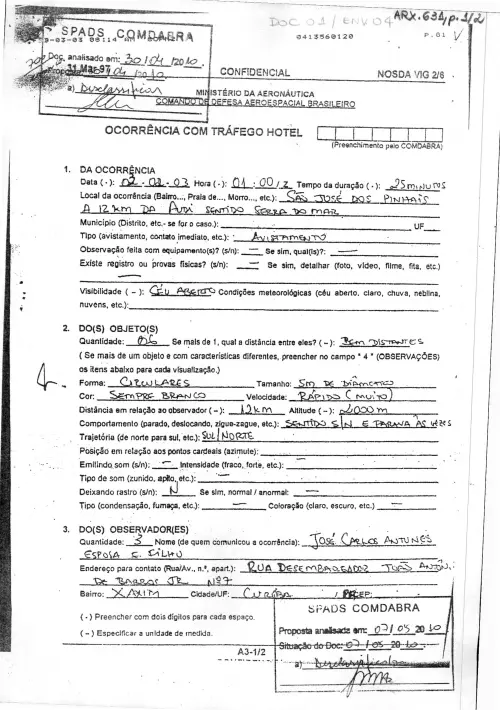 DOC 01 / ENV 04 ARX. 634, p. 1/2
SPADS COMDABRA
0413560120 P. 01
Doc. analisado em: 30/04/2010
31 Mar 97
a) Desclassificar
CONFIDENCIAL NOSDA VIG 2/6
MINISTÉRIO DA AERONÁUTICA
COMANDO DE DEFESA AEROESPACIAL BRASILEIRO
OCORRÊNCIA COM TRÁFEGO HOTEL
(Preenchimento pelo COMDABRA)
1. DA OCORRÊNCIA
Data (-): 02-02-03 Hora (-): 01:00/Z Tempo da duração (-): 25 minutos
Local da ocorrência (Bairro..., Praia de..., Morro..., etc.): SÃO JOSÉ DOS PINHAIS
A 12 KM DA AUDI SENTIDO SERRA DO MAR
Município (Distrito, etc.- se for o caso.): UF
Tipo (avistamento, contato imediato, etc.): AVISTAMENTO
Observação feita com equipamento(s)? (s/n): — Se sim, qual(is)?: —
Existe registro ou provas físicas? (s/n): — Se sim, detalhar (foto, vídeo, filme, fita, etc.)
Visibilidade ( – ): CÉU ABERTO Condições meteorológicas (céu aberto, claro, chuva, neblina,
nuvens, etc.):
2. DO(S) OBJETO(S)
Quantidade: 06 Se mais de 1, qual a distância entre eles? ( – ): BEM DISTANTES
( Se mais de um objeto e com características diferentes, preencher no campo " 4 " (OBSERVAÇÕES)
os itens abaixo para cada visualização.)
Forma: CIRCULARES Tamanho: 5m DE DIÂMETRO
Cor: SEMPRE BRANCO Velocidade: RÁPIDO (MUITO)
Distância em relação ao observador ( – ): 12KM Altitude ( – ): 2000 m
Comportamento (parado, deslocando, zigue-zague, etc.): SENTIDO S/N E PARAVA ÀS VEZES
Trajetória (de norte para sul, etc.): SUL/NORTE
Posição em relação aos pontos cardeais (azimute):
Emitindo som (s/n): — Intensidade (fraco, forte, etc.):
Tipo de som (zunido, apito, etc.):
Deixando rastro (s/n): N Se sim, normal / anormal: —
Tipo (condensação, fumaça, etc.): — Coloração (claro, escuro, etc.) —
3. DO(S) OBSERVADOR(ES)
Quantidade: 3 Nome (de quem comunicou a ocorrência): JOSÉ CARLOS ANTUNES
ESPOSA E FILHO
Endereço para contato (Rua/Av., n.º, apart.): RUA DESEMBARGADOR
DE BARROS JR. Nº 7
Bairro: XAXIM Cidade/UF: CURITIBA / PR CEP:
( - ) Preencher com dois dígitos para cada espaço.
( – ) Especificar a unidade de medida.
A3-1/2
SPADS COMDABRA
Proposta analisada em: 07/05/2010
Situação do Doc: 07/05/2010
a) Desclassificado